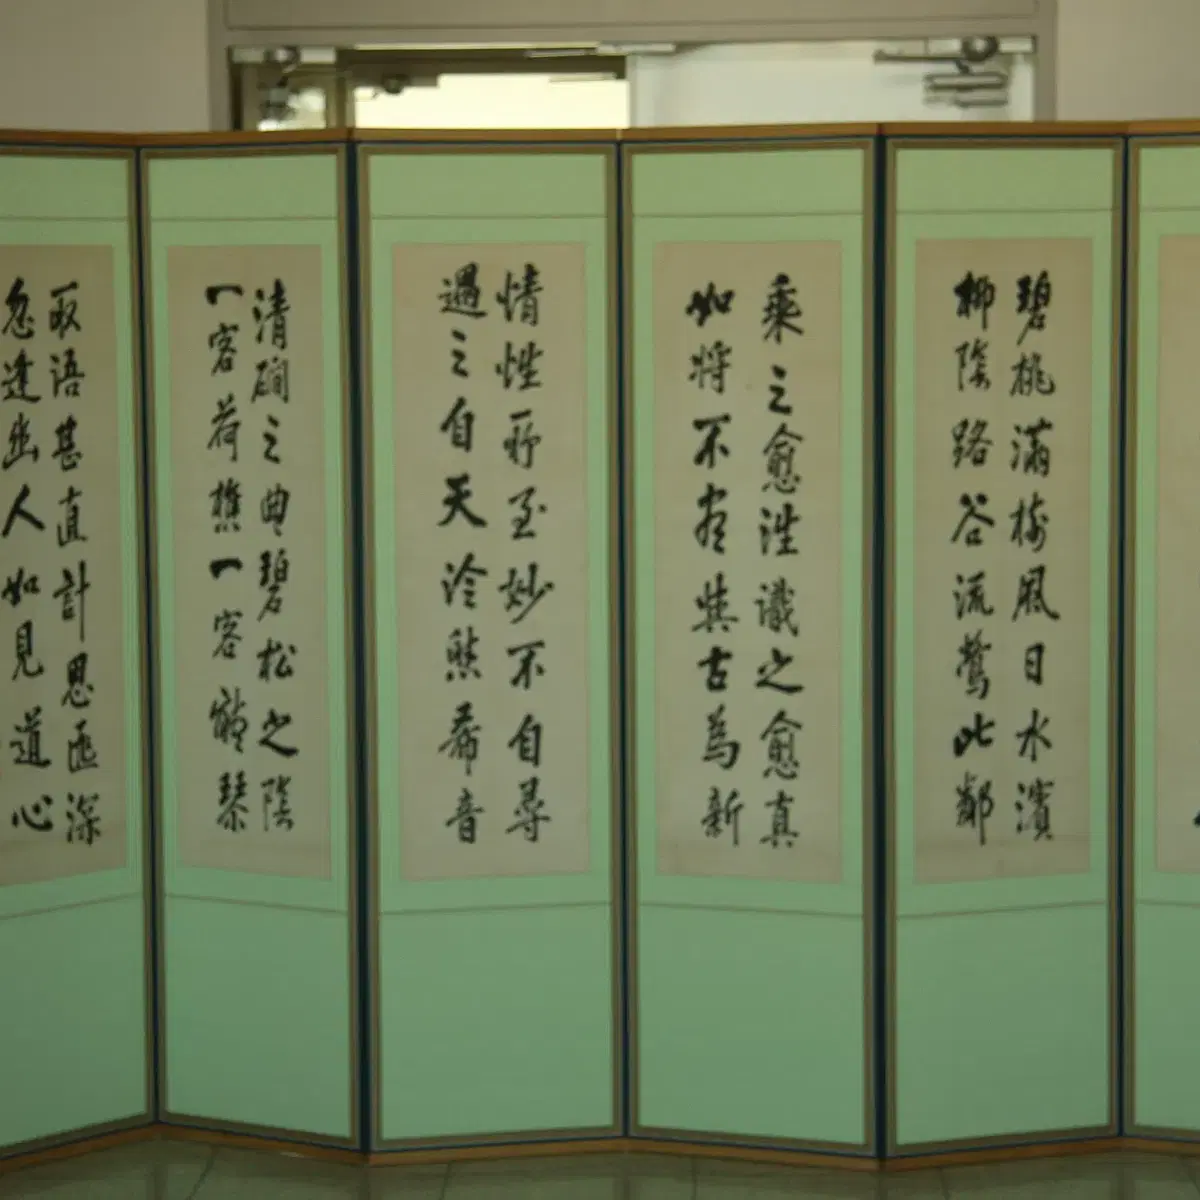 碧桃滿樹風日水濱
柳陰路谷流鶯比鄰
乘之愈往識之愈真
如將不盡與古為新
情性所至妙不自尋
遇之自天泠然希音
清磵之曲碧松之陰
一客荷樵一客聽琴
取語甚直計思匪深
忽逢幽人如見道心